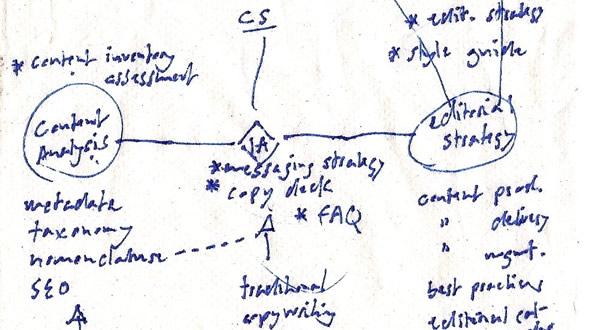 CS
* edit. strategy
* style guide
* content inventory
assessment
Content
Analysis
IA
editorial
strategy
* messaging strategy
* copy deck
* FAQ
metadata
taxonomy
nomenclature
SEO
traditional
copywriting
content prod.
" delivery
" mgmt.
best practices
editorial cal-